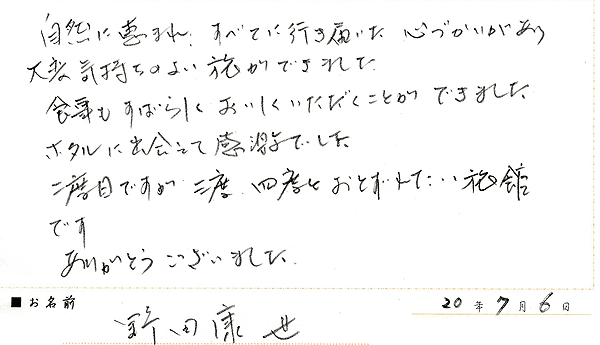 自然に恵まれ、すべてに行き届いた心づかいがあり
大変気持ちのよい旅ができました
食事もすばらしくおいしくいただくことができました
ホタルに出会えて感激でした
二度目ですが 三度、四度とおとずれたい旅館
です
ありがとうございました。
■お名前
20年7月6日
野田康世